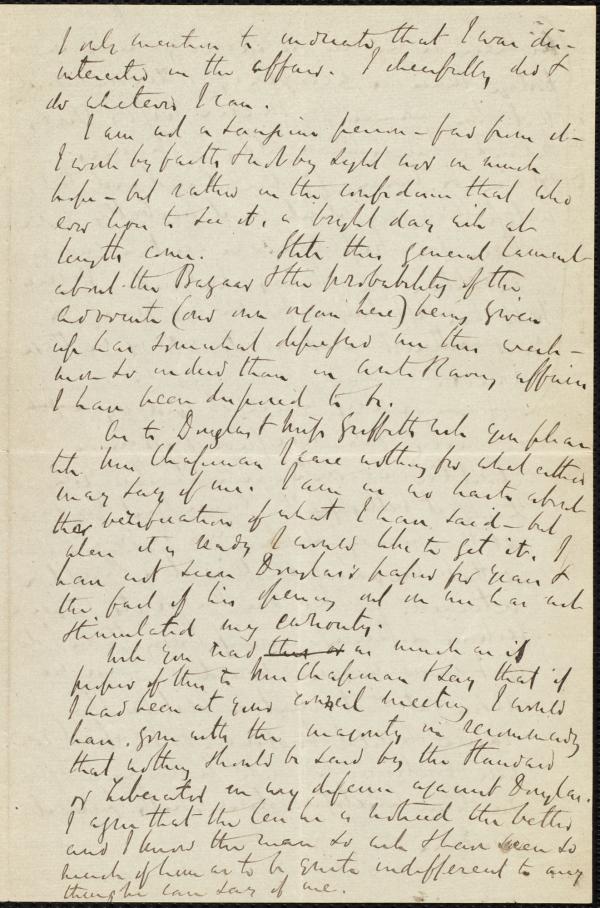 I only mention to indicate that I was dis-
interested in the affair. I cheerfully did &
do whatever I can.
I am not a sanguine person - far from it -
I work by faith & not by sight nor in much
hope - but rather in the confidence that who
ever lives to see it, a bright day will at
length come. Still this general lament
about the Bazaar & the probability of the
Advocate (our own organ here) being given
up has somewhat depressed me this week -
more so indeed than in anti Slavery affairs
I have been disposed to be.
As to Douglass & Miss Griffiths will you please
tell Mrs Chapman I care nothing for what either
may say of me. I am in no haste about
the verification of what I have said - but
when it is ready I would like to get it. I
have not seen Douglass's paper for years &
the fact of his opening out on me has not
stimulated my curiosity.
Will you read as much as is
proper of this to Mrs Chapman & say that if
I had been at your council meeting I would
have gone with the majority in recommending
that nothing should be said by the Standard
or Liberator in any defence against Douglass.
I agree that the less he is noticed the better
and I know the man so well & have seen so
much of him as to be quite indifferent to any
thing he can say of me.